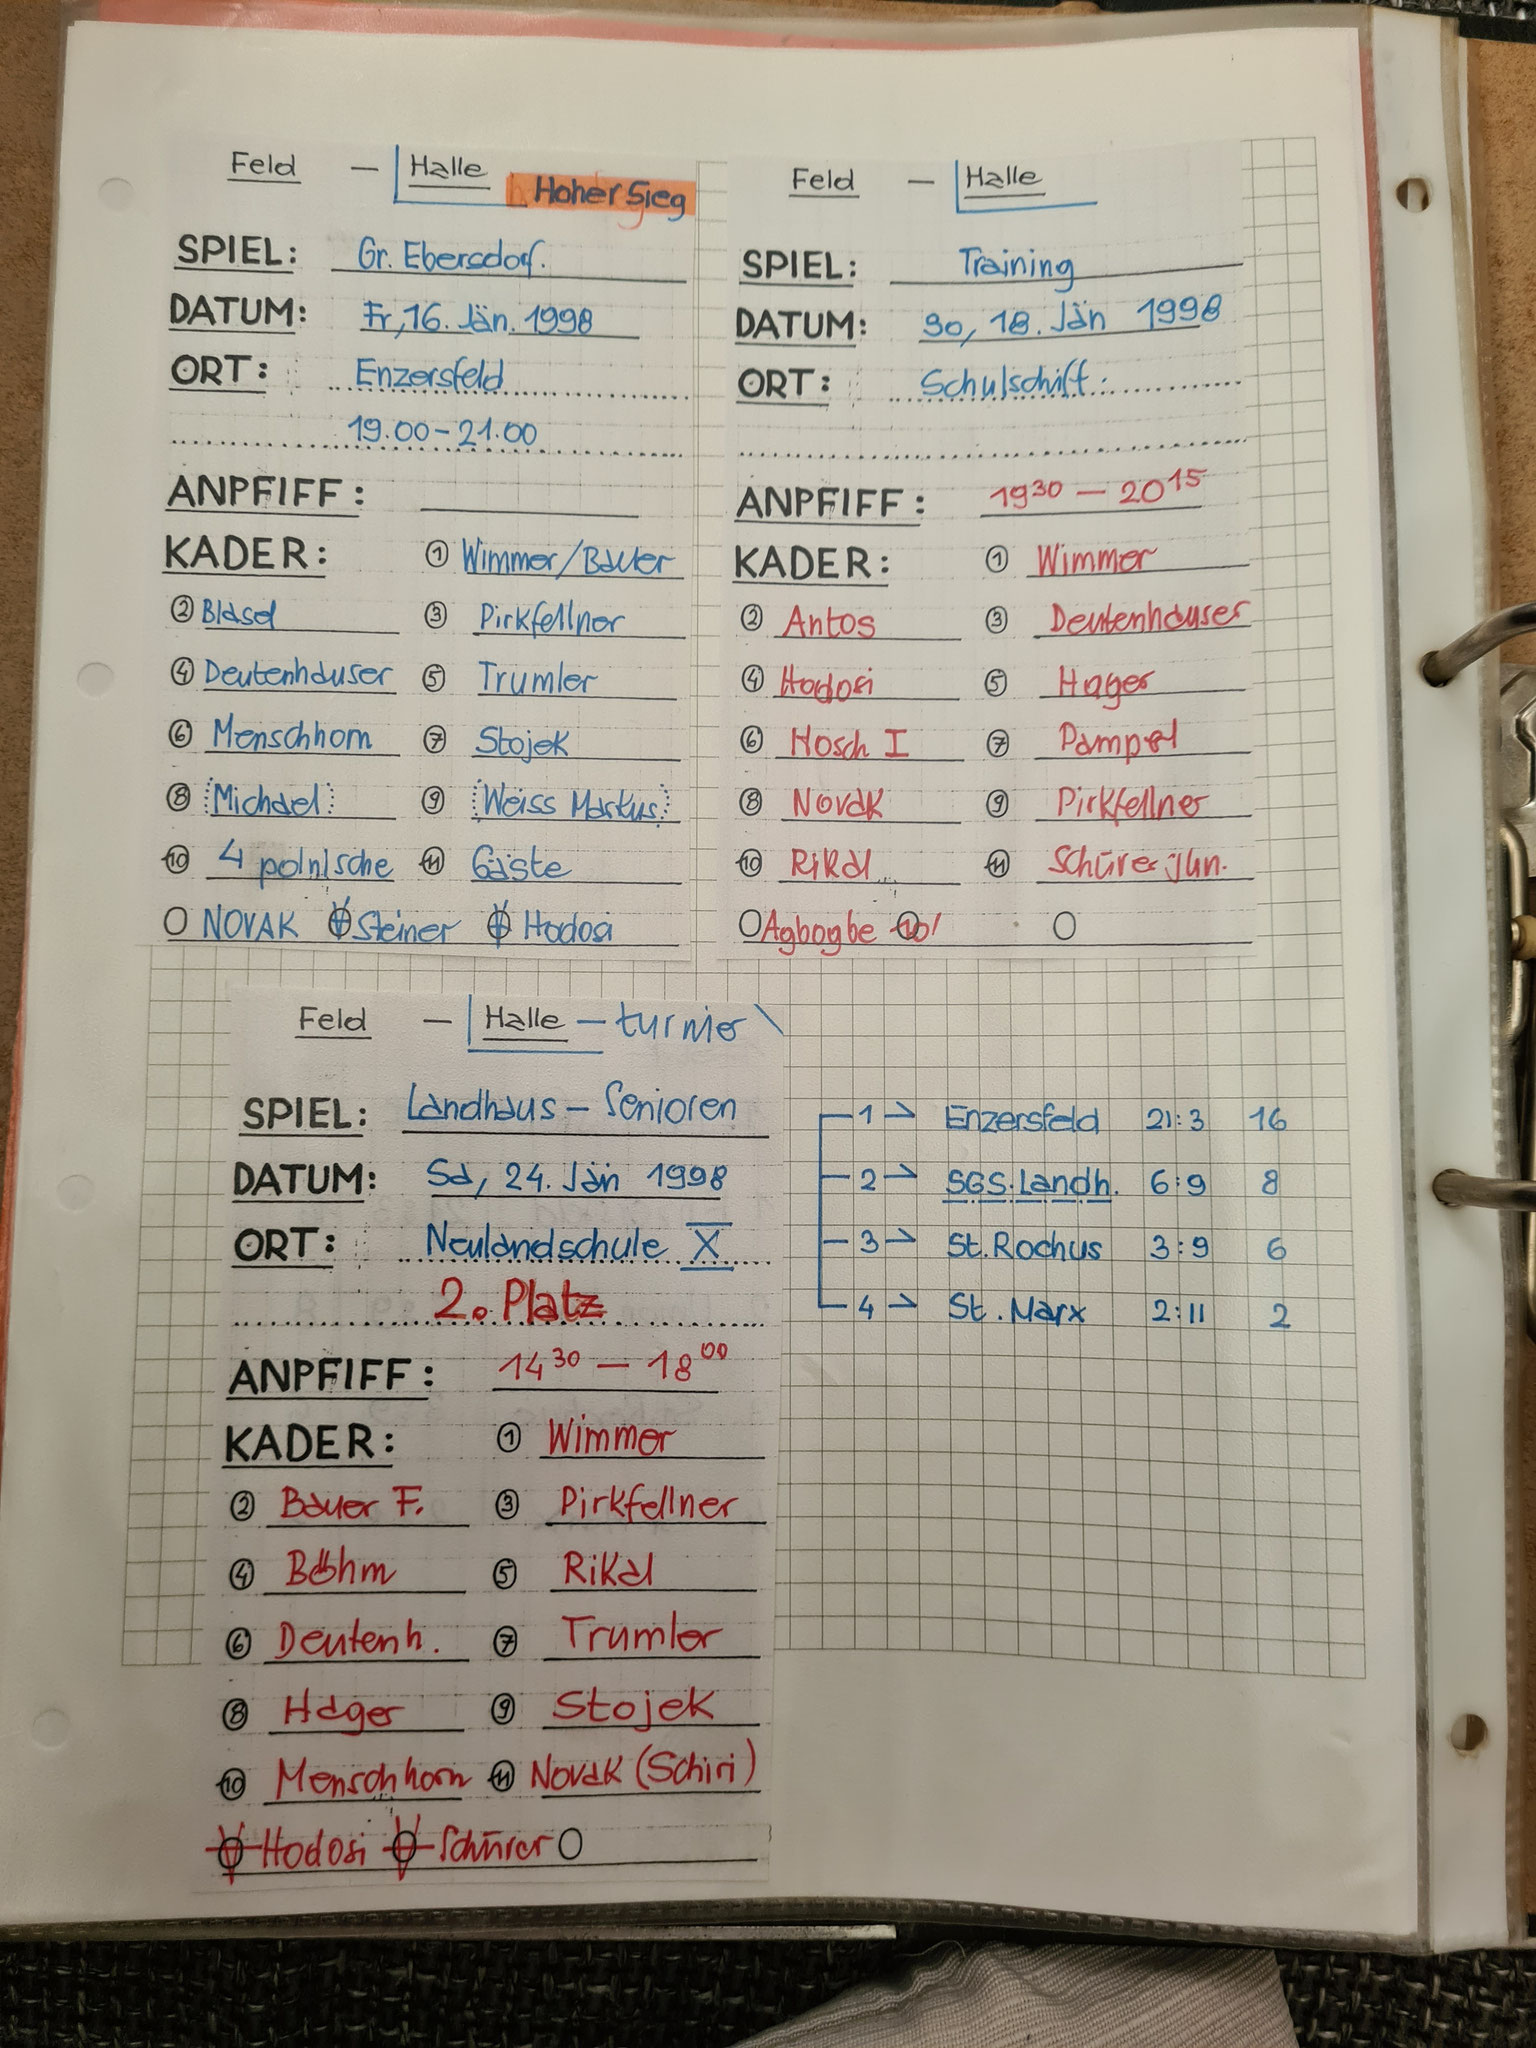 Feld – Halle
Hoher Sieg
SPIEL: Gr. Ebersdorf.
DATUM: Fr, 16. Jän. 1998
ORT: Enzersfeld
19.00 – 21.00
ANPFIFF:
KADER: ① Wimmer/Bauer
② Blasel ③ Pirkfellner
④ Deutenhauser ⑤ Trumler
⑥ Menschhorn ⑦ Stojek
⑧ Michael ⑨ Weiss Markus
⑩ 4 polnische ⑪ Gäste
○ NOVAK ○ Steiner ○ Hodosi
Feld – Halle
SPIEL: Training
DATUM: So, 18. Jän 1998
ORT: Schulschiff.
ANPFIFF: 19³⁰ – 20¹⁵
KADER: ① Wimmer
② Antos ③ Deutenhauser
④ Hodosi ⑤ Hager
⑥ Hosch I ⑦ Pampel
⑧ Novak ⑨ Pirkfellner
⑩ Rikal ⑪ Schürer jun.
○ Agbogbe 10! ○
Feld – Halle – turnier
SPIEL: Landhaus – Senioren
DATUM: Sa, 24. Jän 1998
ORT: Neulandschule X
2. Platz
ANPFIFF: 14³⁰ – 18⁰⁰
KADER: ① Wimmer
② Bauer F. ③ Pirkfellner
④ Böhm ⑤ Rikal
⑥ Deutenh. ⑦ Trumler
⑧ Hager ⑨ Stojek
⑩ Menschhorn ⑪ Novak (Schiri)
○ Hodosi ○ Schürer ○
1 → Enzersfeld 21:3 16
2 → SGS. Landh. 6:9 8
3 → St. Rochus 3:9 6
4 → St. Marx 2:11 2